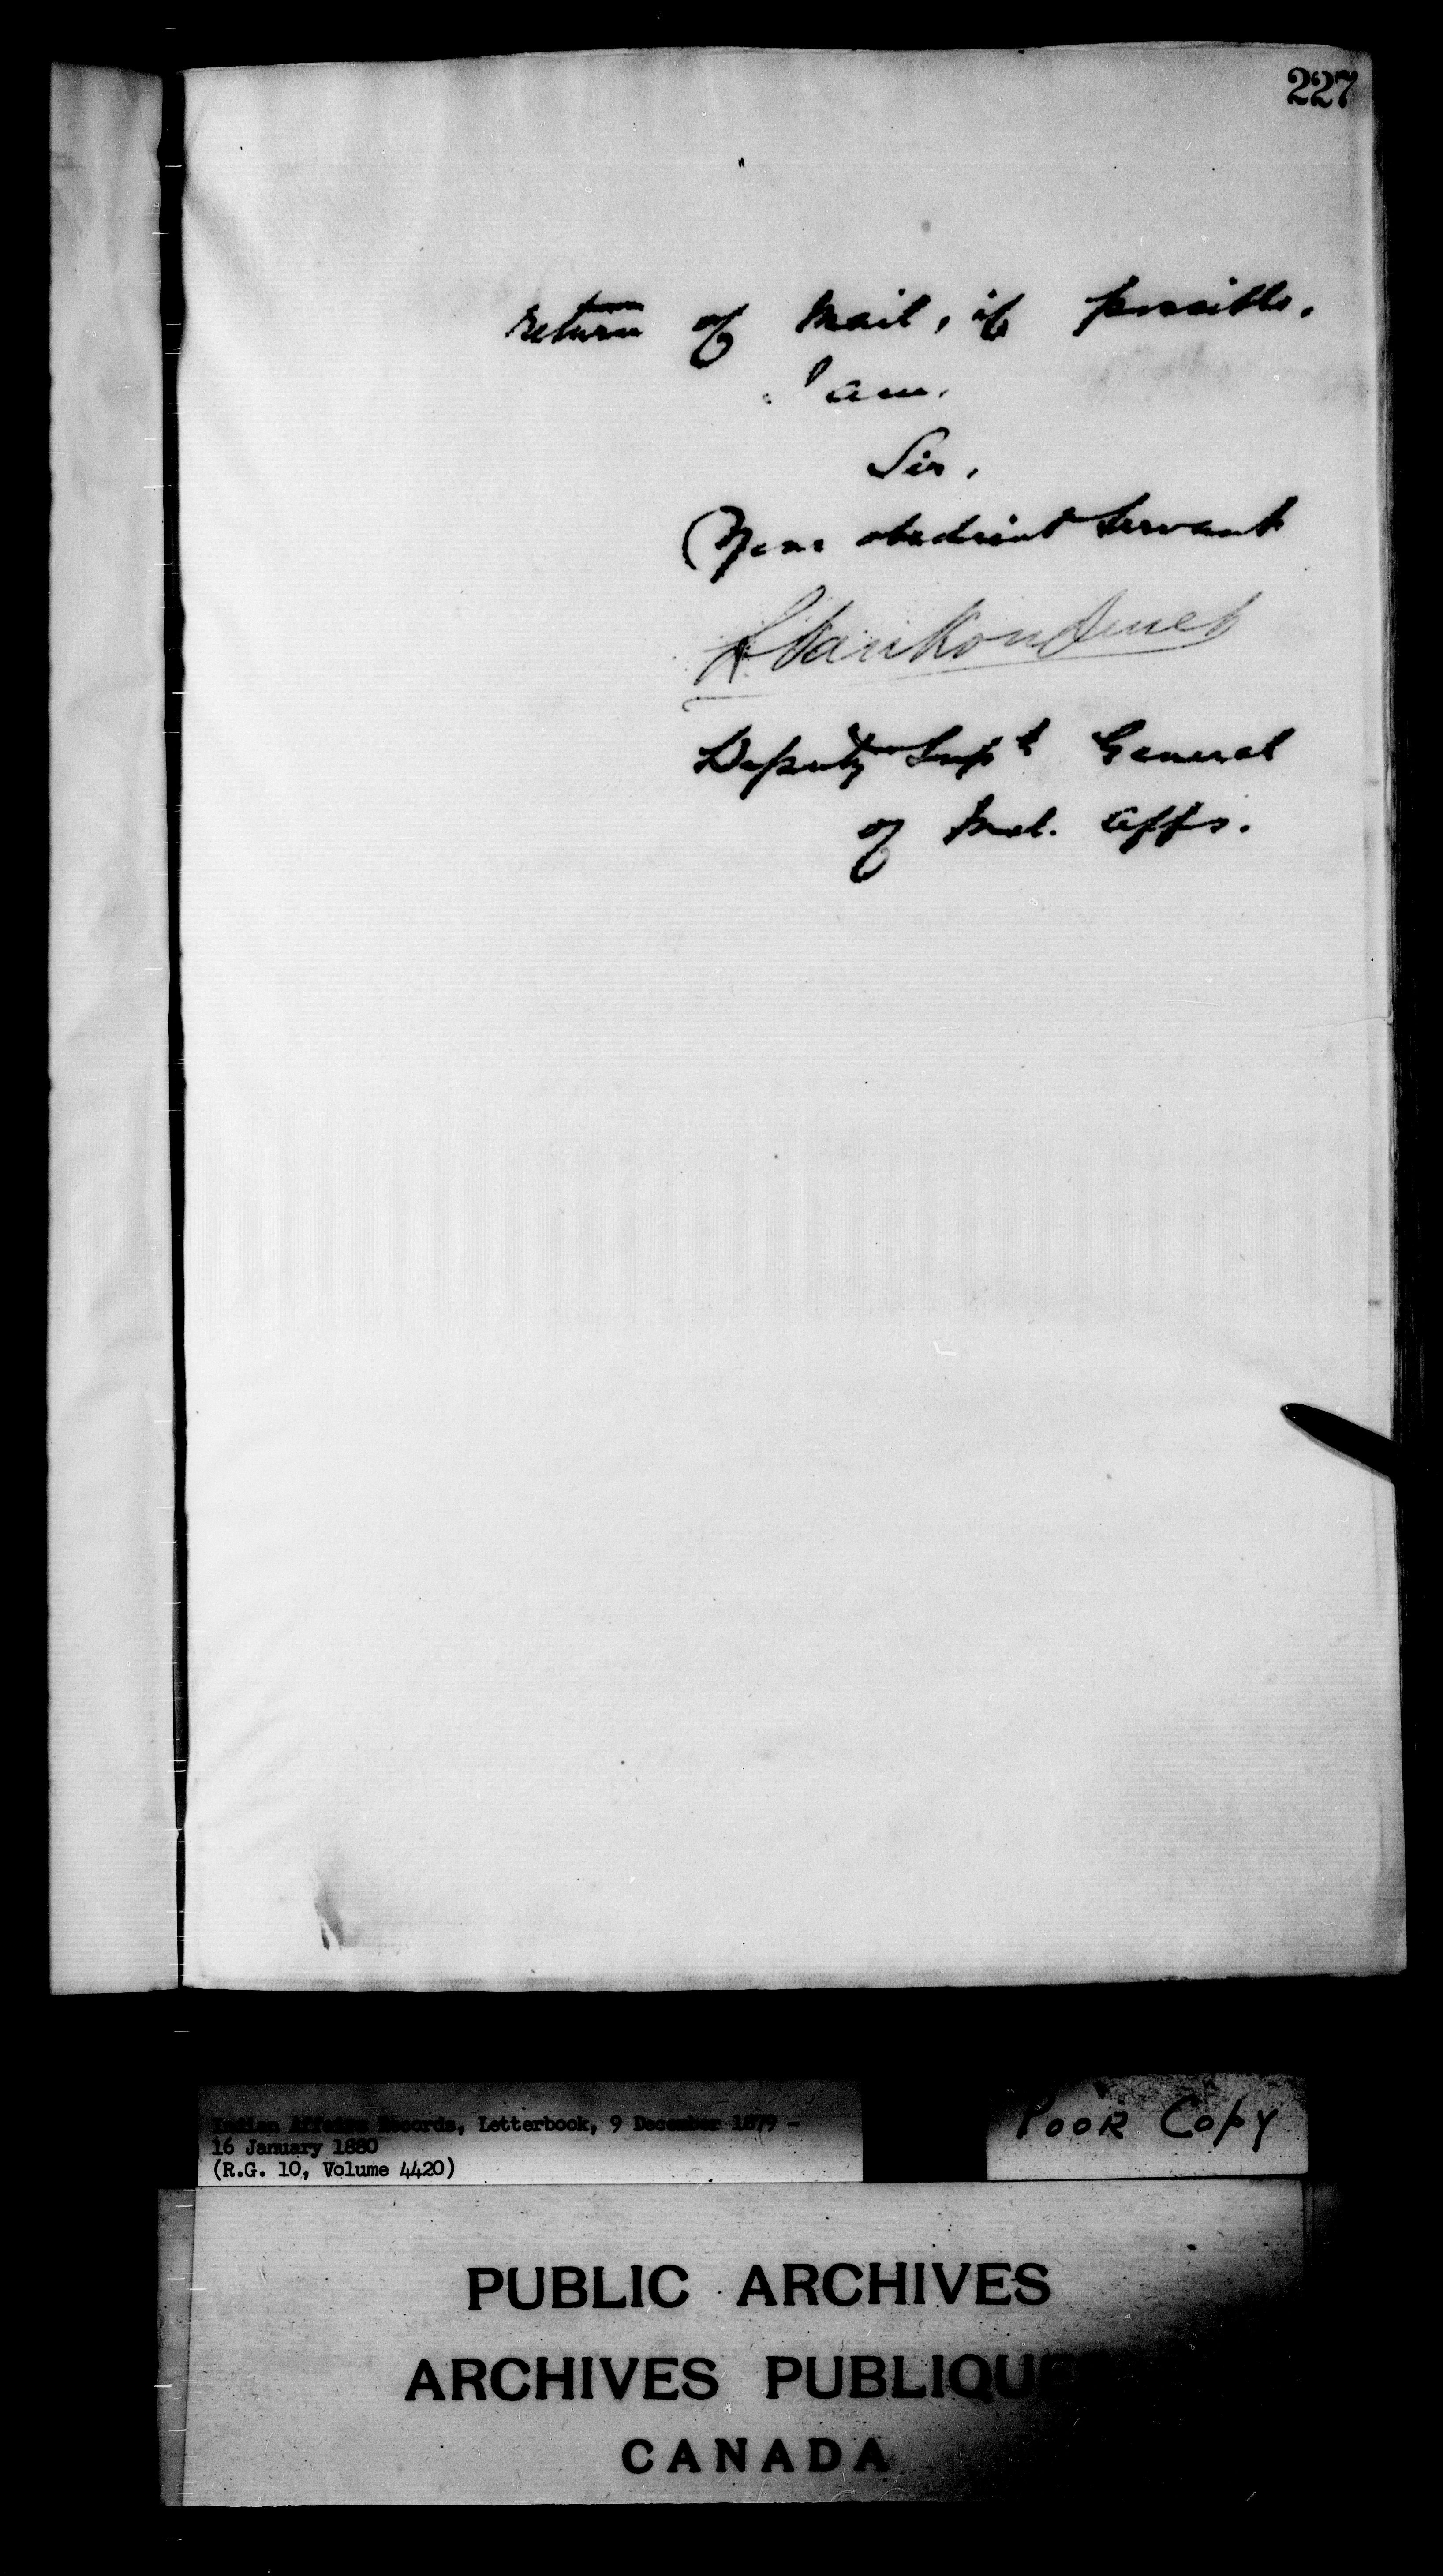 227
return of Mail, if possible.
I am,
Sir,
Your obedient Servant
L VanKoughnet
Deputy Supt General
of Ind. Affs.
Indian Affairs Records, Letterbook, 9 December 1879 -
16 January 1880
(R.G. 10, Volume 4420)
POOR COPY
PUBLIC ARCHIVES
ARCHIVES PUBLIQUES
CANADA